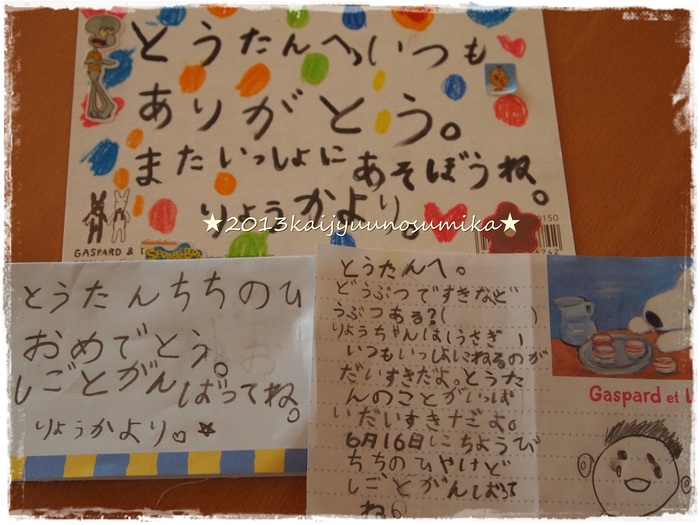 とうたんへいつも
ありがとう。
またいっしょにあそぼうね。
りょうかより。
★2013kaijyuunosumika★
GASPARD &
とうたんちちのひ
おめでとう。
しごとがんばってね。
りょうかより。
とうたんへ。
どうぶつですきなど
うぶつある?( )
りょうちゃんはうさぎ
いつもいっしょにねるのが
だいすきだよ。とうた
んのことがいっぱ
いだいすきだよ。
6月16日にちようび
ちちのひやけど
しごとがんばって
ね
Gaspard et L